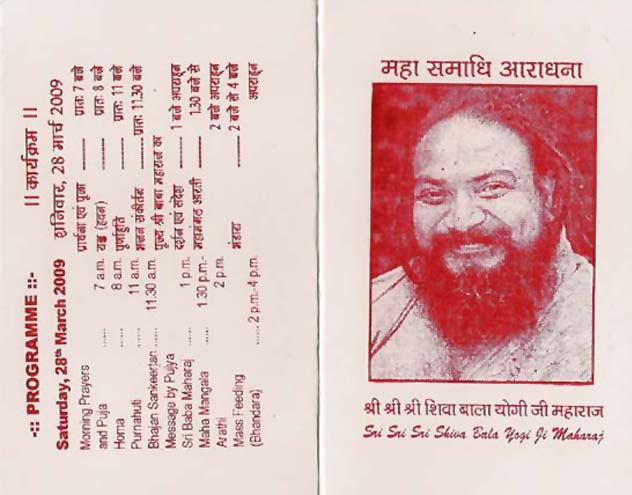 -:: PROGRAMME ::-
Saturday, 28th March 2009
Morning Prayers
and Puja ...... 7 a.m.
Homa ...... 8 a.m.
Purnahuti ...... 11 a.m.
Bhajan Sankeertan ...... 11.30 a.m.
Message by Pujya
Sri Baba Maharaj ...... 1 p.m.
Maha Mangala ...... 1.30 p.m.-
Arathi 2 p.m.
Mass Feeding
(Bhandara) ...... 2 p.m.-4 p.m.
|| कार्यक्रम ||
शनिवार, 28 मार्च 2009
प्रार्थना एवं पूजा प्रातः 7 बजे
यज्ञ (हवन) प्रातः 8 बजे
पूर्णाहुति प्रातः 11 बजे
भजन संकीर्तन प्रातः 11.30 बजे
पूज्य श्री बाबा महाराज का
दर्शन एवं संदेश 1 बजे अपराहून
महामंगल आरती 1.30 बजे से
2 बजे अपराहून
भंडारा 2 बजे से 4 बजे
अपराहून
महा समाधि आराधना
श्री श्री श्री शिवा बाला योगी जी महाराज
Sri Sri Sri Shiva Bala Yogi Ji Maharaj